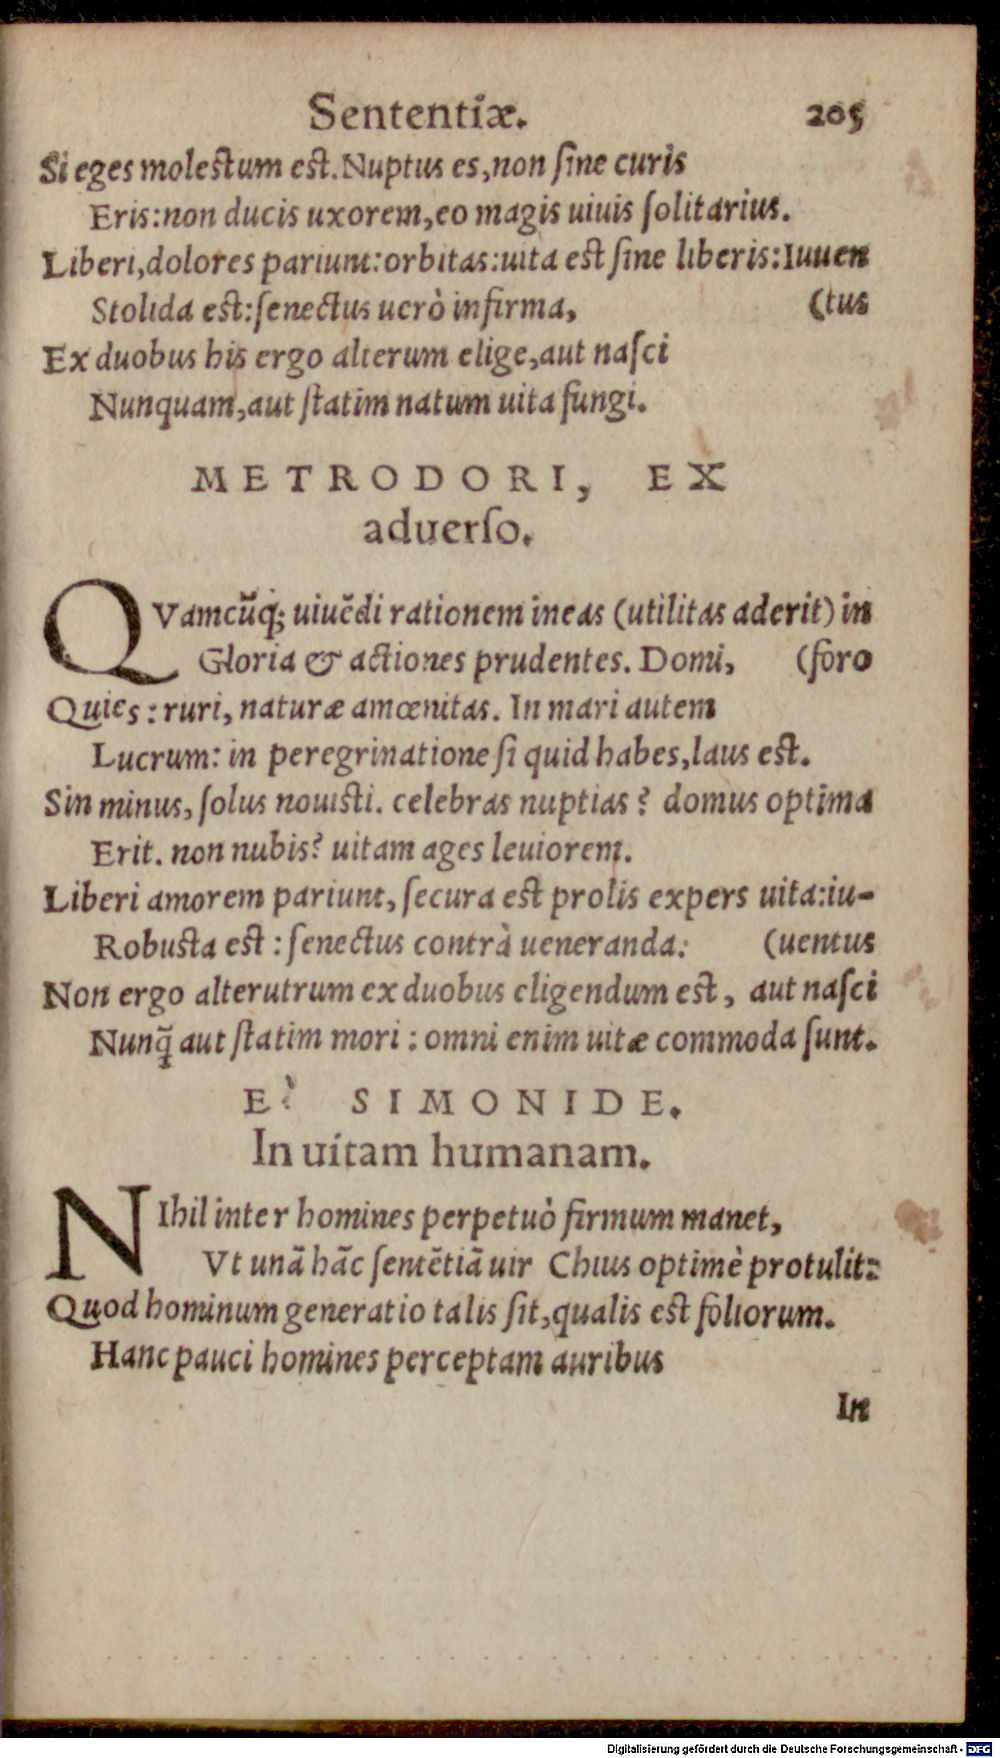 Sententiæ. 205
Si eges molestum est. Nuptus es, non ſine curis
Eris: non ducis uxorem, eo magis uiuis ſolitarius.
Liberi, dolores pariunt: orbitas: uita est ſine liberis: Iuuen
Stolida est: ſenectus uerò infirma, (tus
Ex duobus his ergo alterum elige, aut naſci
Nunquam, aut ſtatim natum uita fungi.
METRODORI, EX
aduerſo.
QVamcũq; uiuẽdi rationem ineas (utilitas aderit) in
Gloria & actiones prudentes. Domi, (foro
Quies: ruri, naturæ amœnitas. In mari autem
Lucrum: in peregrinatione ſi quid habes, laus est.
Sin minus, ſolus nouisti. celebras nuptias? domus optima
Erit. non nubis? uitam ages leuiorem.
Liberi amorem pariunt, ſecura est prolis expers uita: iu-
Robusta est: ſenectus contrà ueneranda: (uentus
Non ergo alterutrum ex duobus eligendum est, aut naſci
Nunq̃ aut ſtatim mori: omni enim uitæ commoda ſunt.
E` SIMONIDE.
In uitam humanam.
NIhil inter homines perpetuò firmum manet,
Vt unã hãc ſentẽtiã uir Chius optimè protulit:
Quod hominum generatio talis ſit, qualis est foliorum.
Hanc pauci homines perceptam auribus
In
Digitalisierung gefördert durch die Deutsche Forschungsgemeinschaft - DFG